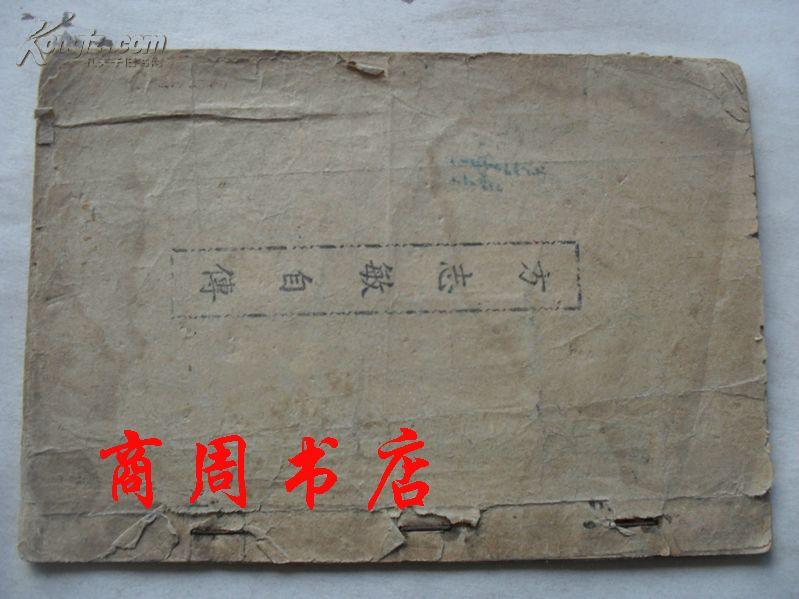 Kongfz.com
孔夫子旧书网
方志敏自傳
商周书店